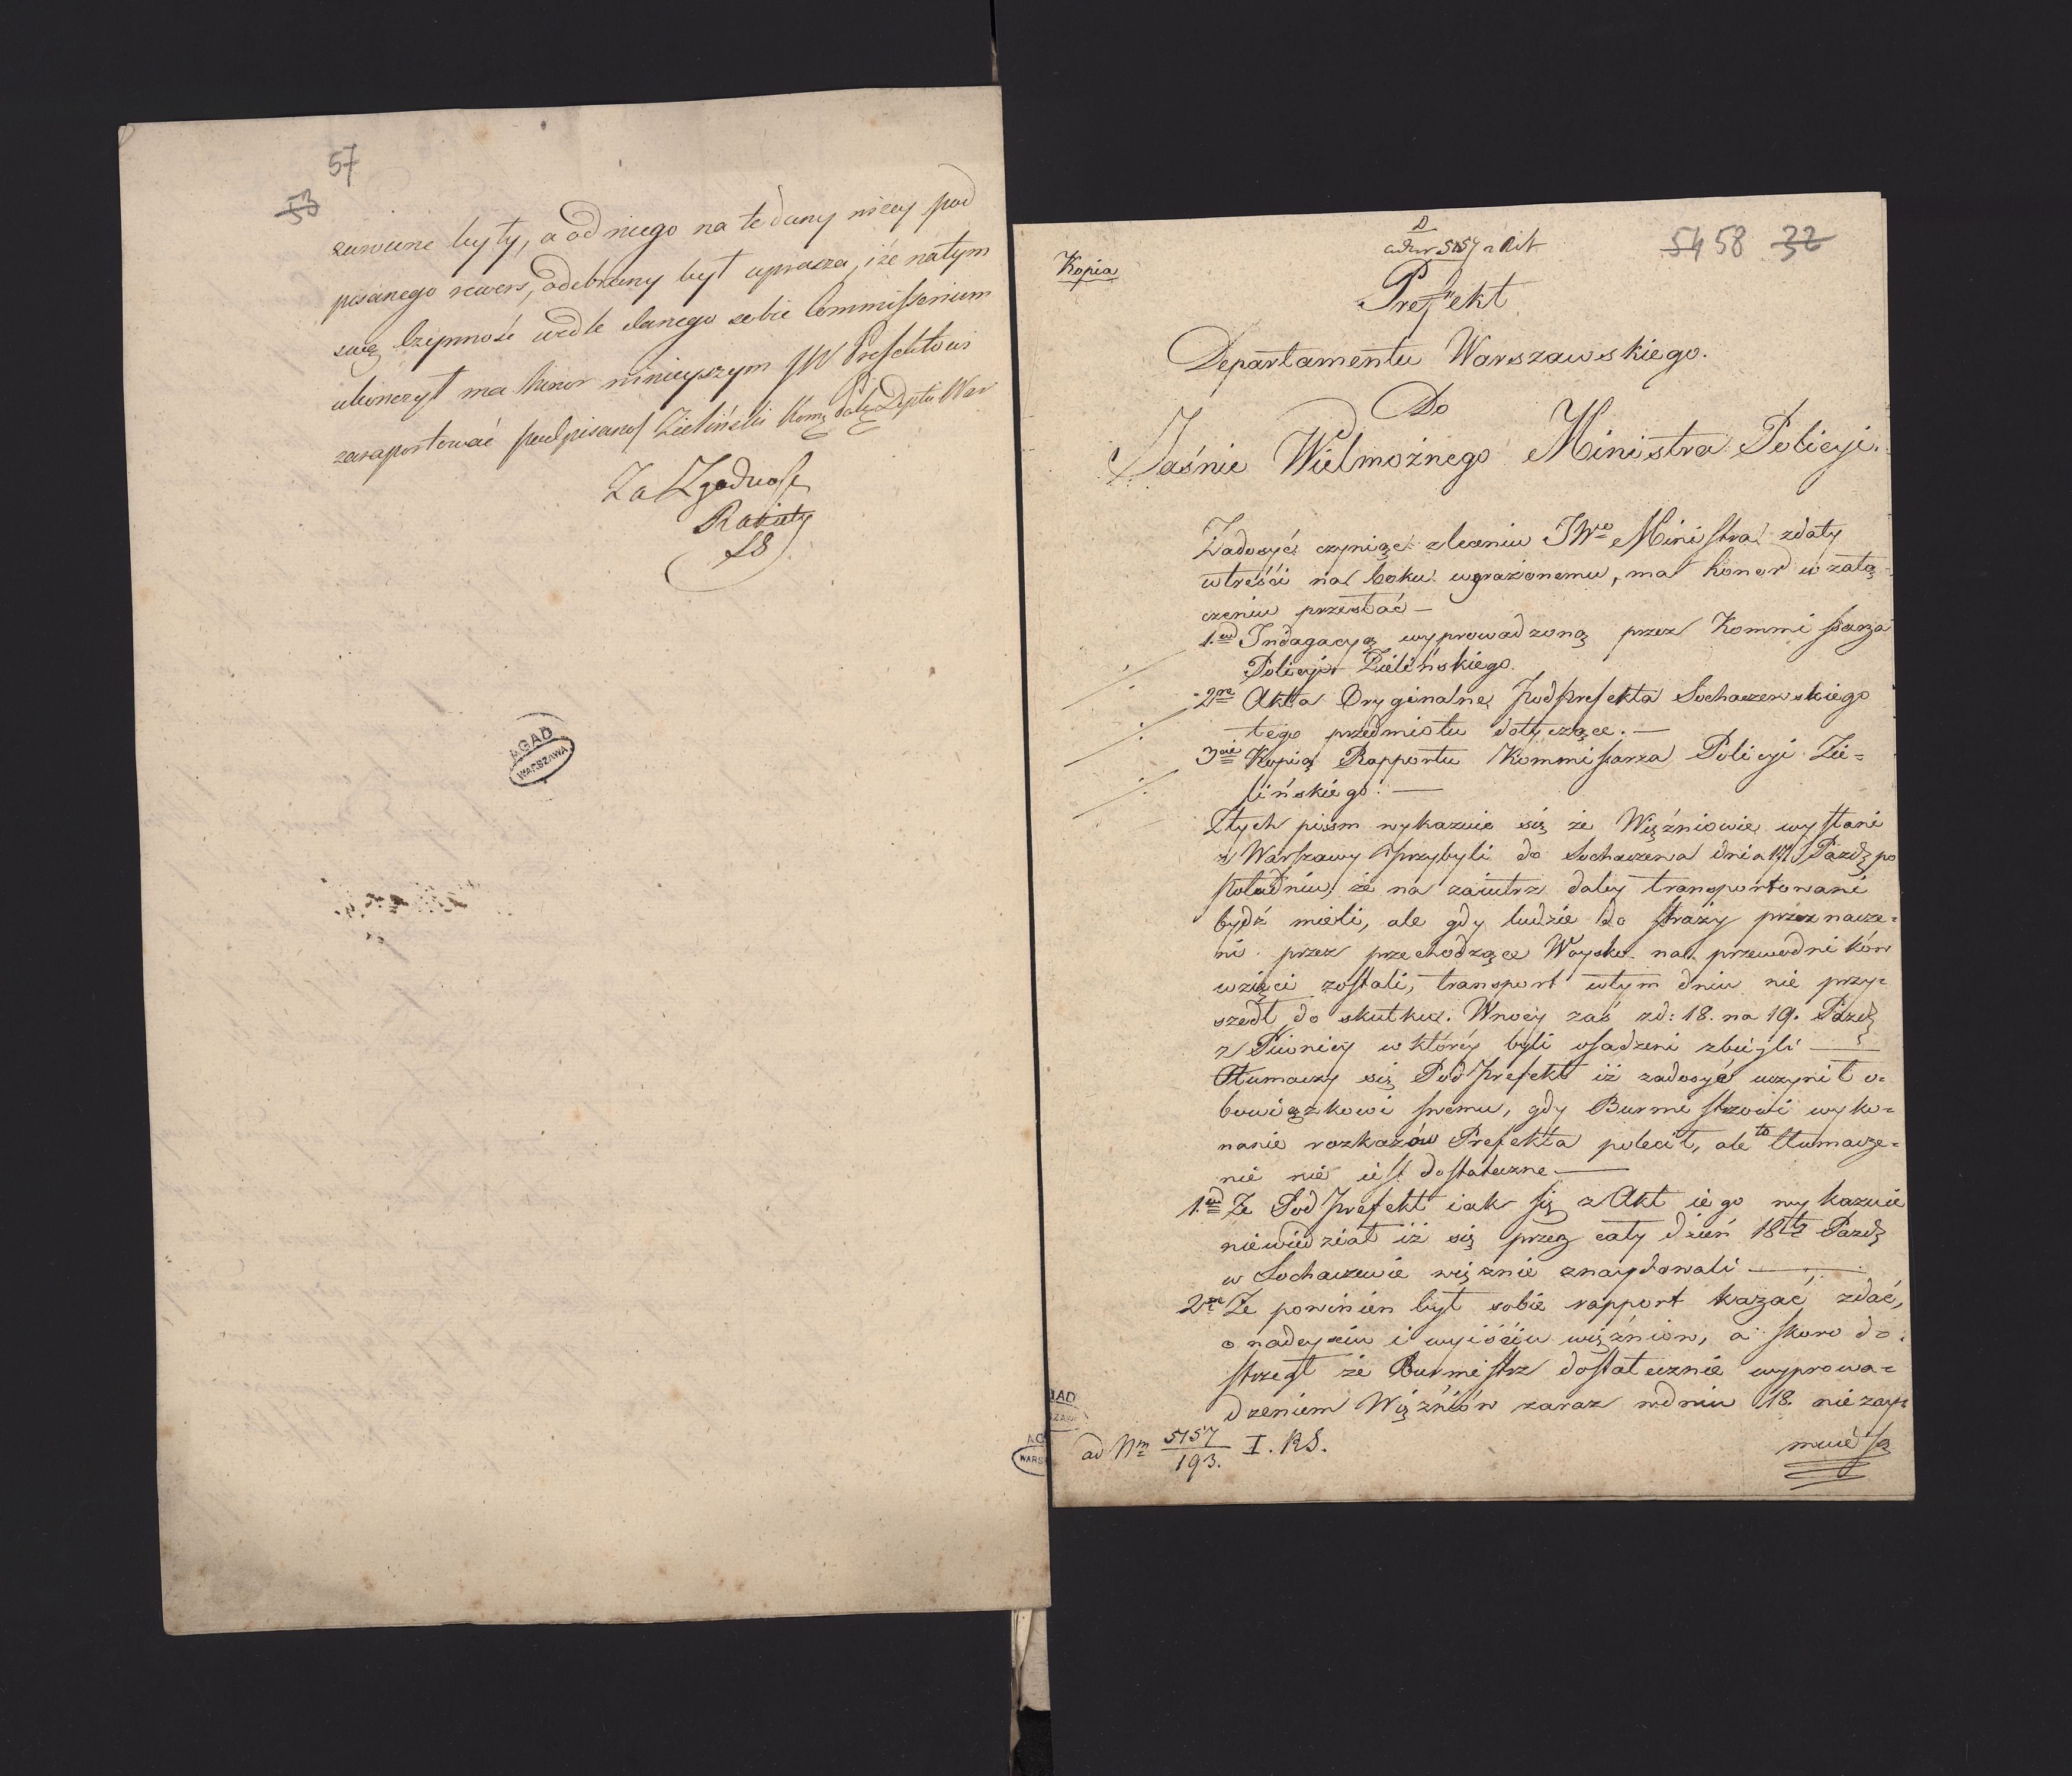 57
53
zawane były, a od niego na te dany niżey pod
pisanego rewers, odebrany był uprasza, iże natym
swą czynność wedle danego sobie Commisserium
ukończył ma honor ninieyszym JW Prefektowi
zaraportować podpisany Zieliński Kom: Dptu War
Za Zgodność
AGAD
WARSZAWA
Kopia
54 58 32
Prefekt
Departamentu Warszawskiego.
Do
Jaśnie Wielmożnego Ministra Policyi.
Zadosyć czyniąc zleceniu JWo Ministra zdaty
wtreści na boku wyrażonemu, ma honor w załą-
czeniu przesłać —
1.mo Indagacyą wyprowadzoną przez Kommissarza
Policyi Zielińskiego.
2re Akta Oryginalne Podprefekta Sochaczewskiego
tego przedmiotu dotyczące. —
3cie Kopią Rapportu Kommissarza Policyi Zie=
lińskiego. —
Ztych pism wykazuie się że Więźniowie wysłani
z Warszawy przybyli do Sochaczewa dnia 17 Pazdz po
południu, że na zaiutrz daley transportowani
bydź mieli, ale gdy ludzie do straży przeznacze=
ni przez przechodzące Woysko na przewodników
wzięci zostali, transport wtym dniu nie przy=
szedł do skutku. Wnocy zaś zd: 18. na 19. Pazdz
z Piwnicy w którey byli osadzeni zbiegli —
Tłumaczy się Podprefekt iż zadosyć uczynił o=
bowiązkowi swemu, gdy Burmistrzowi wyko=
nanie rozkazów Prefekta polecił, ale to tłumacze=
nie nie iest dostateczne —
1.mo Ze Podprefekt iak się z Akt iego wykazuie
niewiedział iż się przez cały dzień 18tz Pazdz
w Sochaczewie więznie znaydowali —
2re Ze powinien był sobie rapport kazać zdać,
o nadeyściu i wyiściu więźniów, a skoro do=
strzegł że Burmistrz dostatecznie wyprowa=
dzeniem Więźniów zaraz wdniu 18. nie zay=
muie się
ad Nm 5157/193. I. KS.